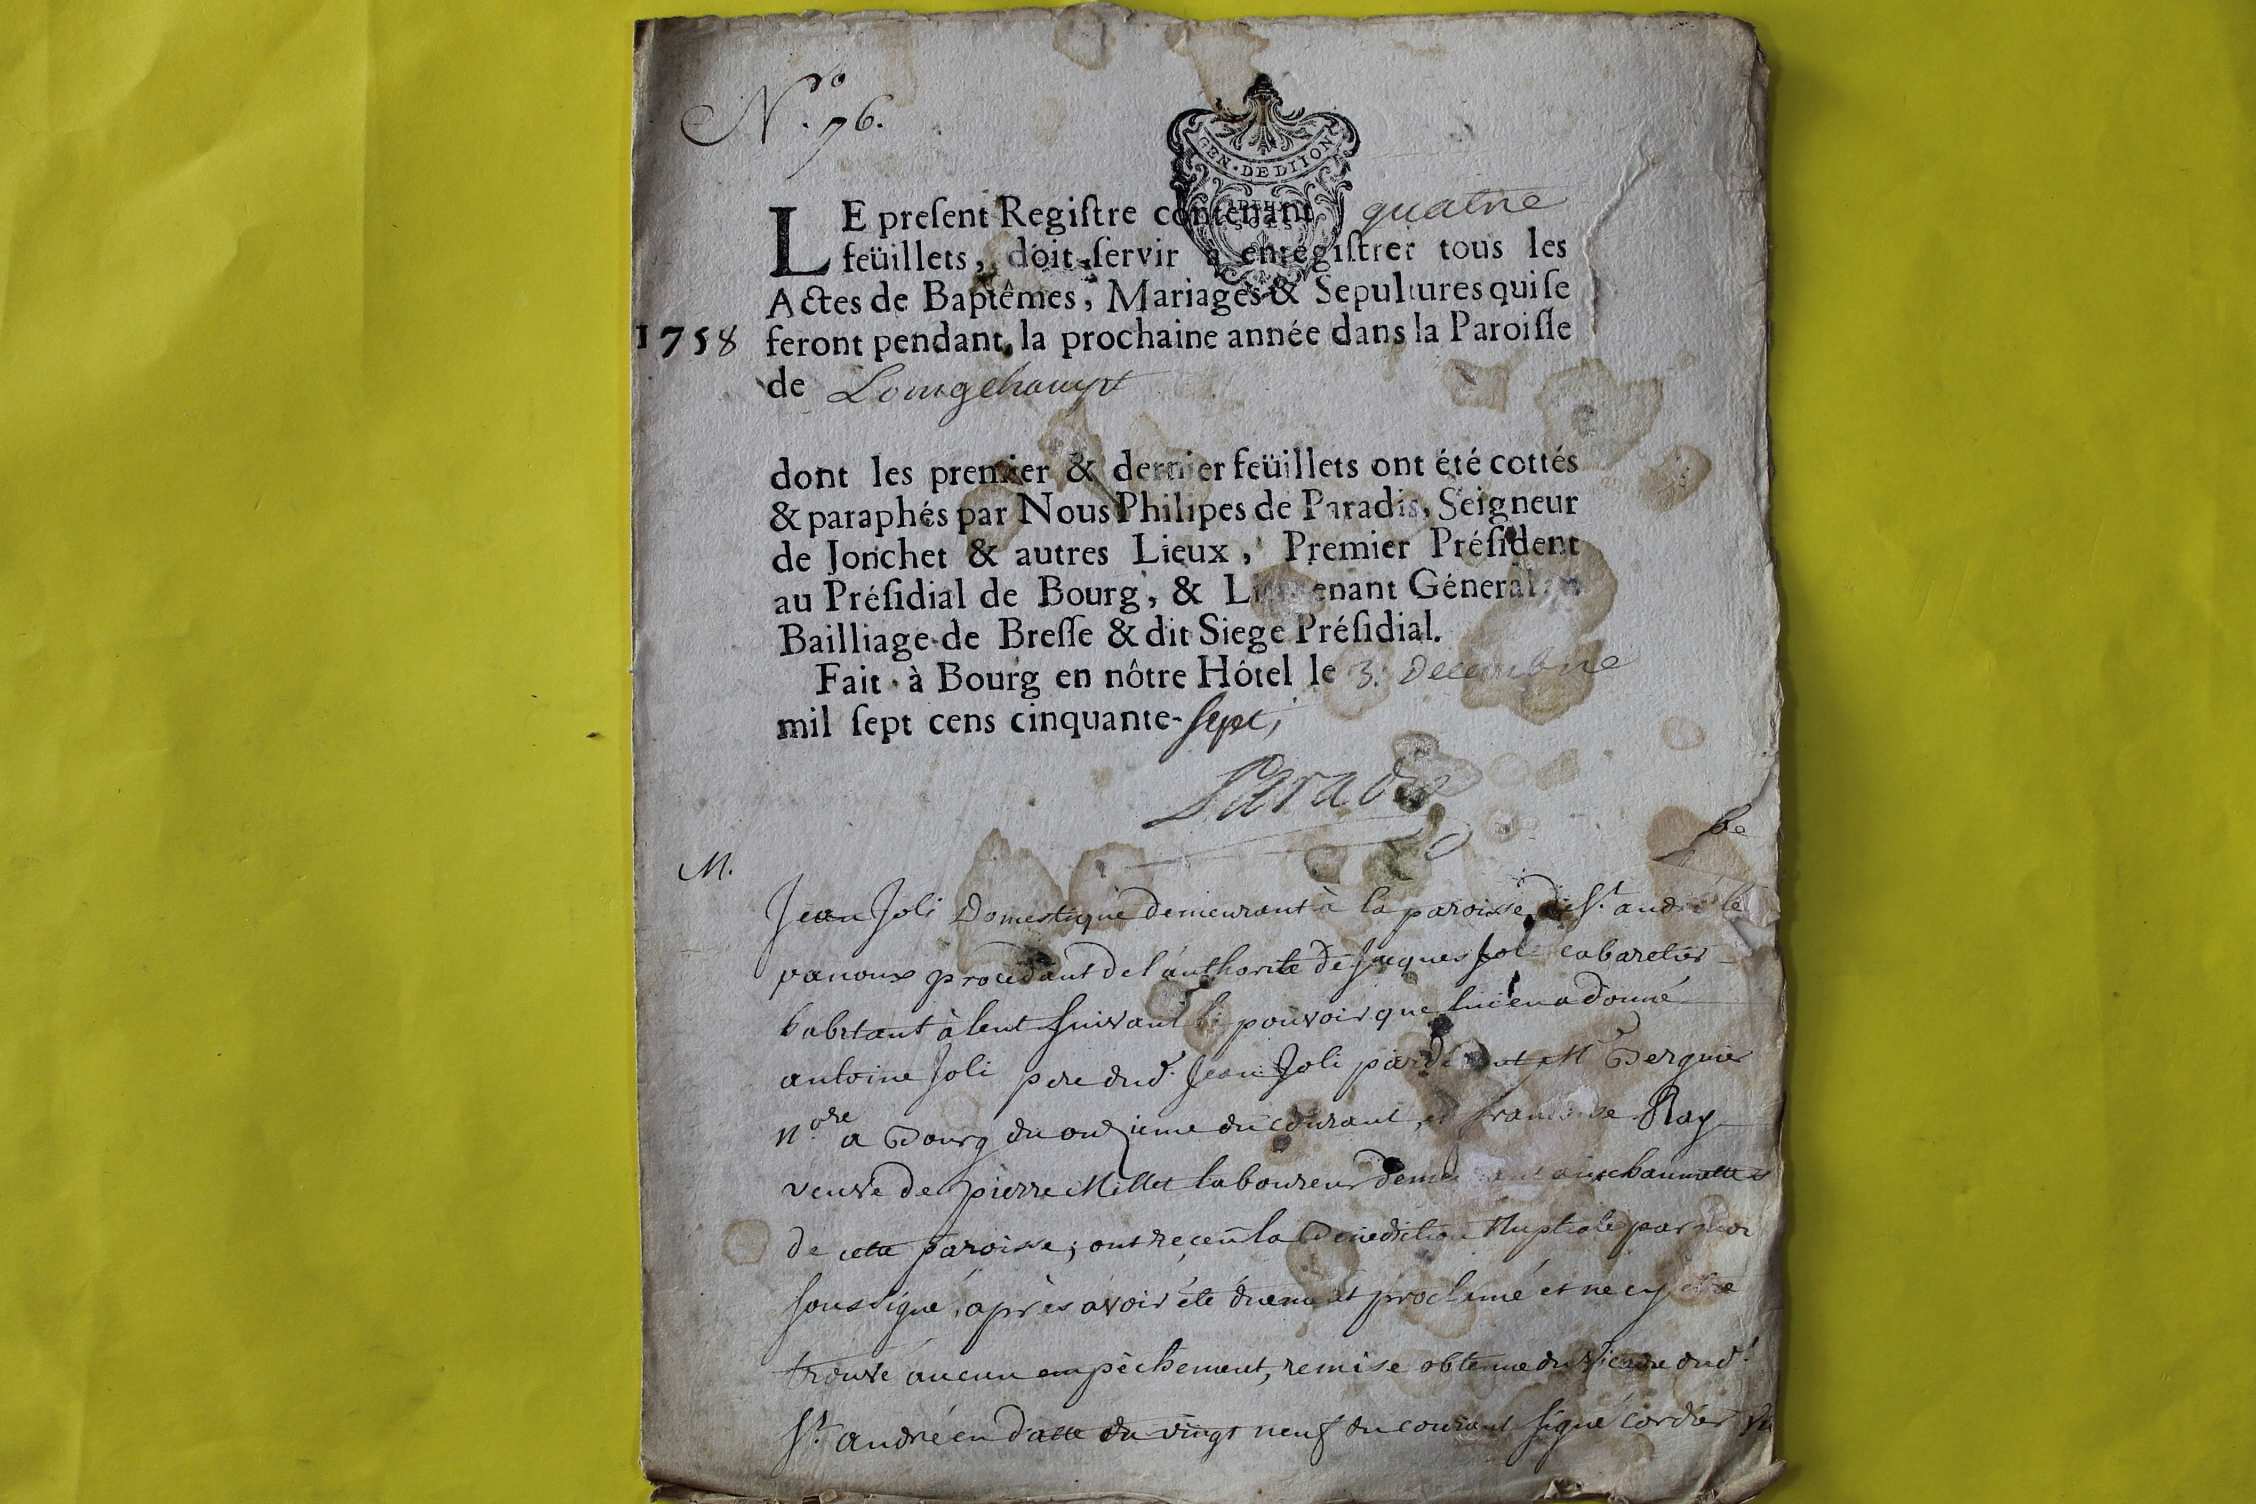 Nro. 76.
GEN · DE DIION
LE preſent Regiſtre contenant quatre
feüillets, doit ſervir à enregiſtrer tous les
Actes de Baptêmes, Mariages & Sepultures qui ſe
1758 feront pendant la prochaine année dans la Paroiſſe
de Longchampt
dont les premier & dernier feüillets ont été cottés
& paraphés par Nous Philipes de Paradis, Seigneur
de Jonchet & autres Lieux, Premier Préſident
au Préſidial de Bourg, & Lieutenant Géneral au
Bailliage de Breſſe & dit Siege Préſidial.
Fait à Bourg en nôtre Hôtel le 3. Decembre
mil ſept cens cinquante-sept;
Paradis
M.
Jean Joli Domestique demeurant à la paroisse de St. andré le
panoux procedant de l'authorité de Jacques Joli cabaretier
habitant à lent suivant le pouvoir que lui en a donné
antoine Joli pere dud. Jean Joli pardevant Me
nore a Bourg du onzieme du courant, et francoise Ray
veuve de pierre Millet laboureur demeurant aux baumettes
de cette paroisse; ont reçeu la Benediction Nuptiale par moi
soussigné, après avoir été düement proclamé et ne s'y être
trouvé aucun empêchement, remise obtenue du vicaire dud.
St. andré en datte du vingt neuf du courant signé cordier